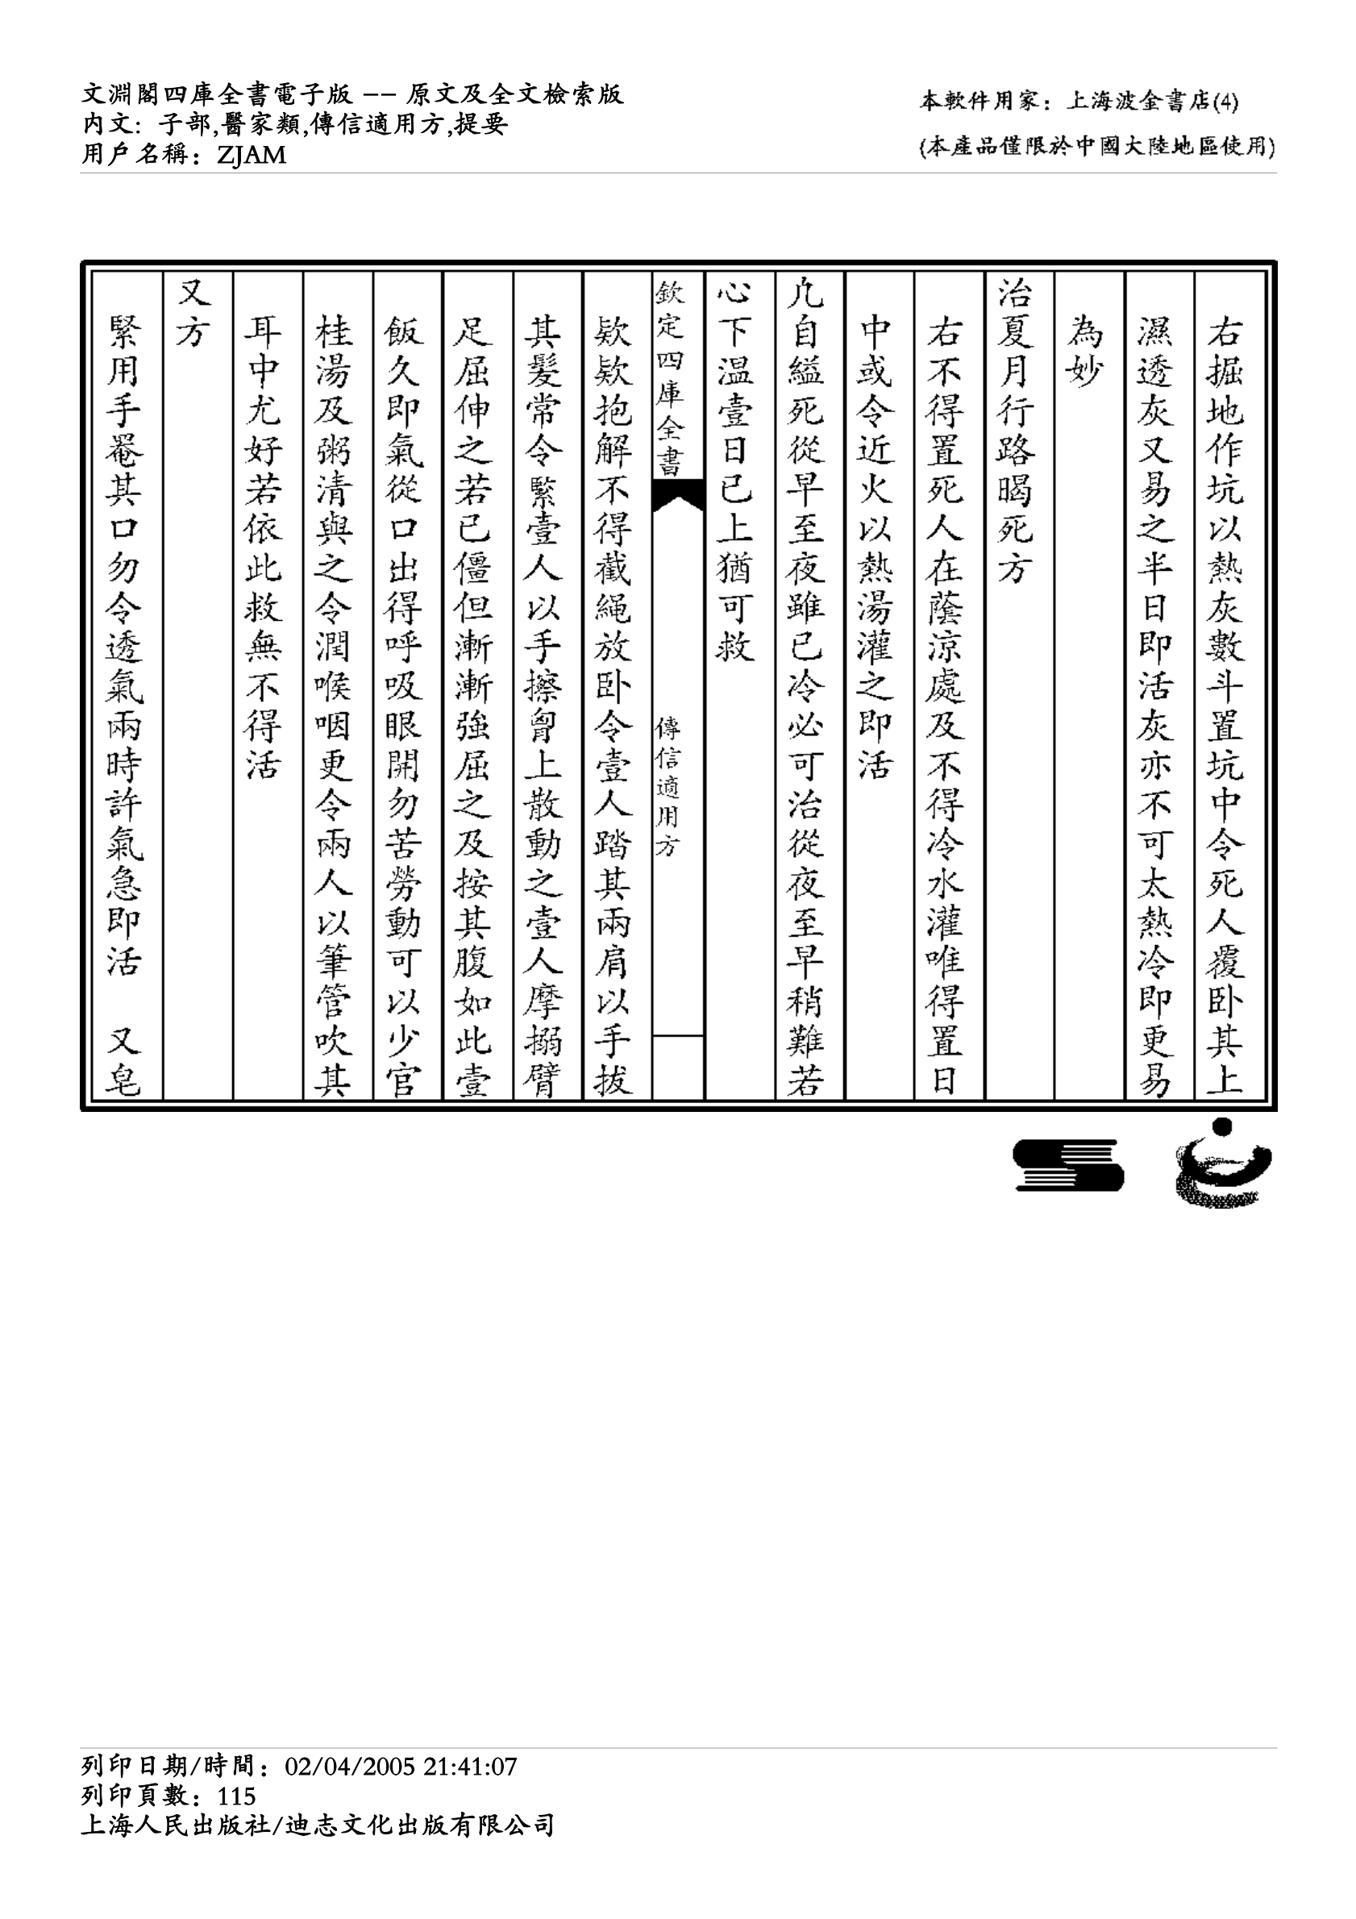 文淵閣四庫全書電子版 -- 原文及全文檢索版
内文: 子部,醫家類,傳信適用方,提要
用戶名稱: ZJAM
本軟件用家: 上海波金書店(4)
(本產品僅限於中國大陸地區使用)
右掘地作坑以熱灰數斗置坑中令死人覆卧其上
濕透灰又易之半日即活灰亦不可太熱冷即更易
為妙
治夏月行路暍死方
右不得置死人在蔭涼處及不得冷水灌唯得置日
中或令近火以熱湯灌之即活
凡自縊死從早至夜雖已冷必可治從夜至早稍難若
心下温壹日已上猶可救
欽定四庫全書
傳信適用方
欵欵抱解不得截繩放卧令壹人踏其兩肩以手拔
其髮常令緊壹人以手擦胷上散動之壹人摩搦臂
足屈伸之若已僵但漸漸強屈之及按其腹如此壹
飯久即氣從口出得呼吸眼開勿苦勞動可以少官
桂湯及粥清與之令潤喉咽更令兩人以筆管吹其
耳中尤好若依此救無不得活
又方
緊用手罨其口勿令透氣兩時許氣急即活 又皂
列印日期/時間: 02/04/2005 21:41:07
列印頁數: 115
上海人民出版社/迪志文化出版有限公司